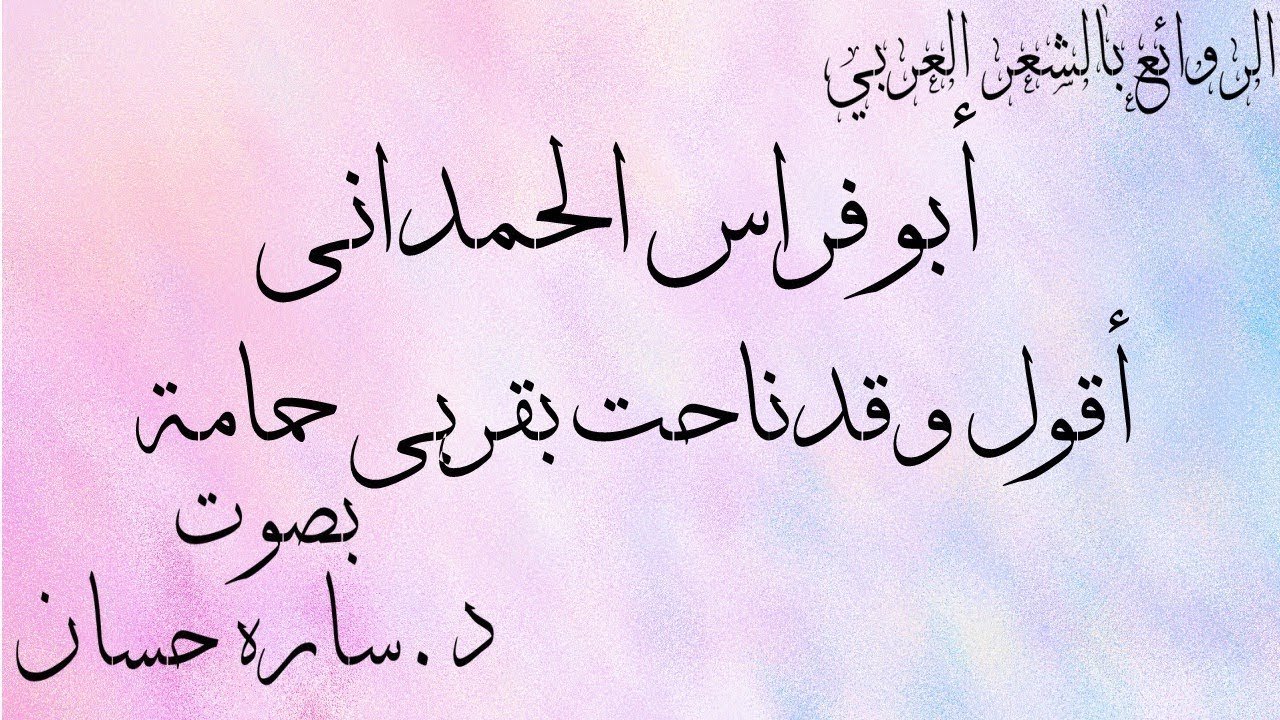 الروائع بالشعر العربي
أبو فراس الحمدانى
أقول وقد ناحت بقربى حمامة
بصوت
د. ساره حسان